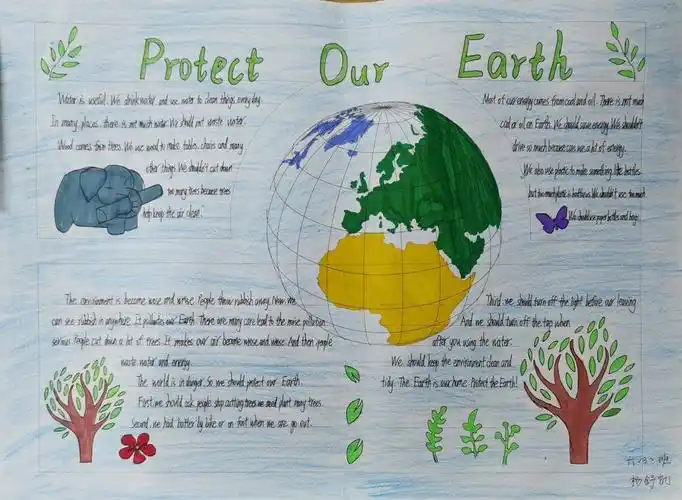 Protect Our Earth
Water is useful. We drink water and use water to clean things every day.
In many places, there is not much water. We should not waste water.
Wood comes from trees. We use wood to make tables, chairs and many
other things. We shouldn't cut down
too many trees because trees
help keep the air clean.
Most of our energy comes from coal and oil. There is not much
coal or oil on Earth. We should save energy. We shouldn't
drive so much because cars use a lot of energy.
We also use plastic to make something like bottles
but too much plastic is bad for us. We shouldn't use too much.
We should use paper bottles and bags.
The environment is become wose and wrose. People throw rubbish away. Now we
can see rubbish in anywhere. It pollutes our Earth. There are many cars lead to the noise pollution
serious. People cut down a lot of trees. It makes our air become wose and wose. And then people
waste water and energy.
The world is in danger. So we should protect our Earth.
First, we should ask people stop cutting trees we and plant many trees.
Second, we had batter by bike or on foot when we are go out.
Third, we should turn off the light before our leaving
And we should turn off the tap when
after you using the water.
We should keep the environment clean and
tidy. The Earth is our home. Protect the Earth!
六(3)班